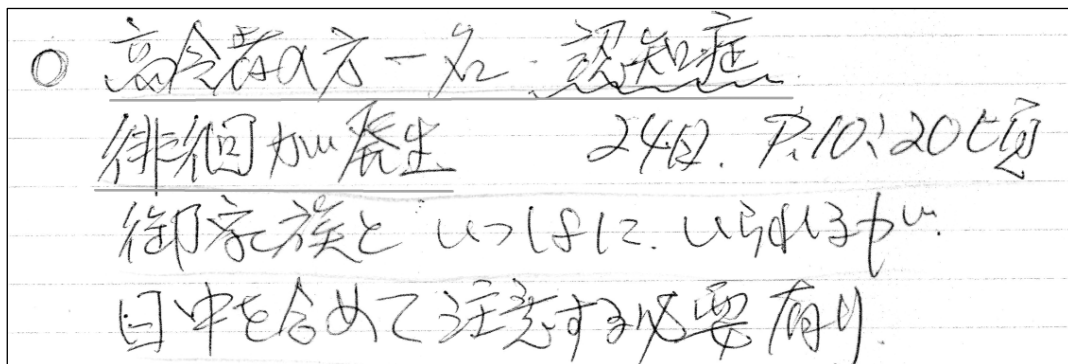 ○ 高令者の方一名．認知症
徘徊が発生　24日．P.10:20じ頃
御家族といっしょに．いられるが．
日中を含めて注意する必要有り．